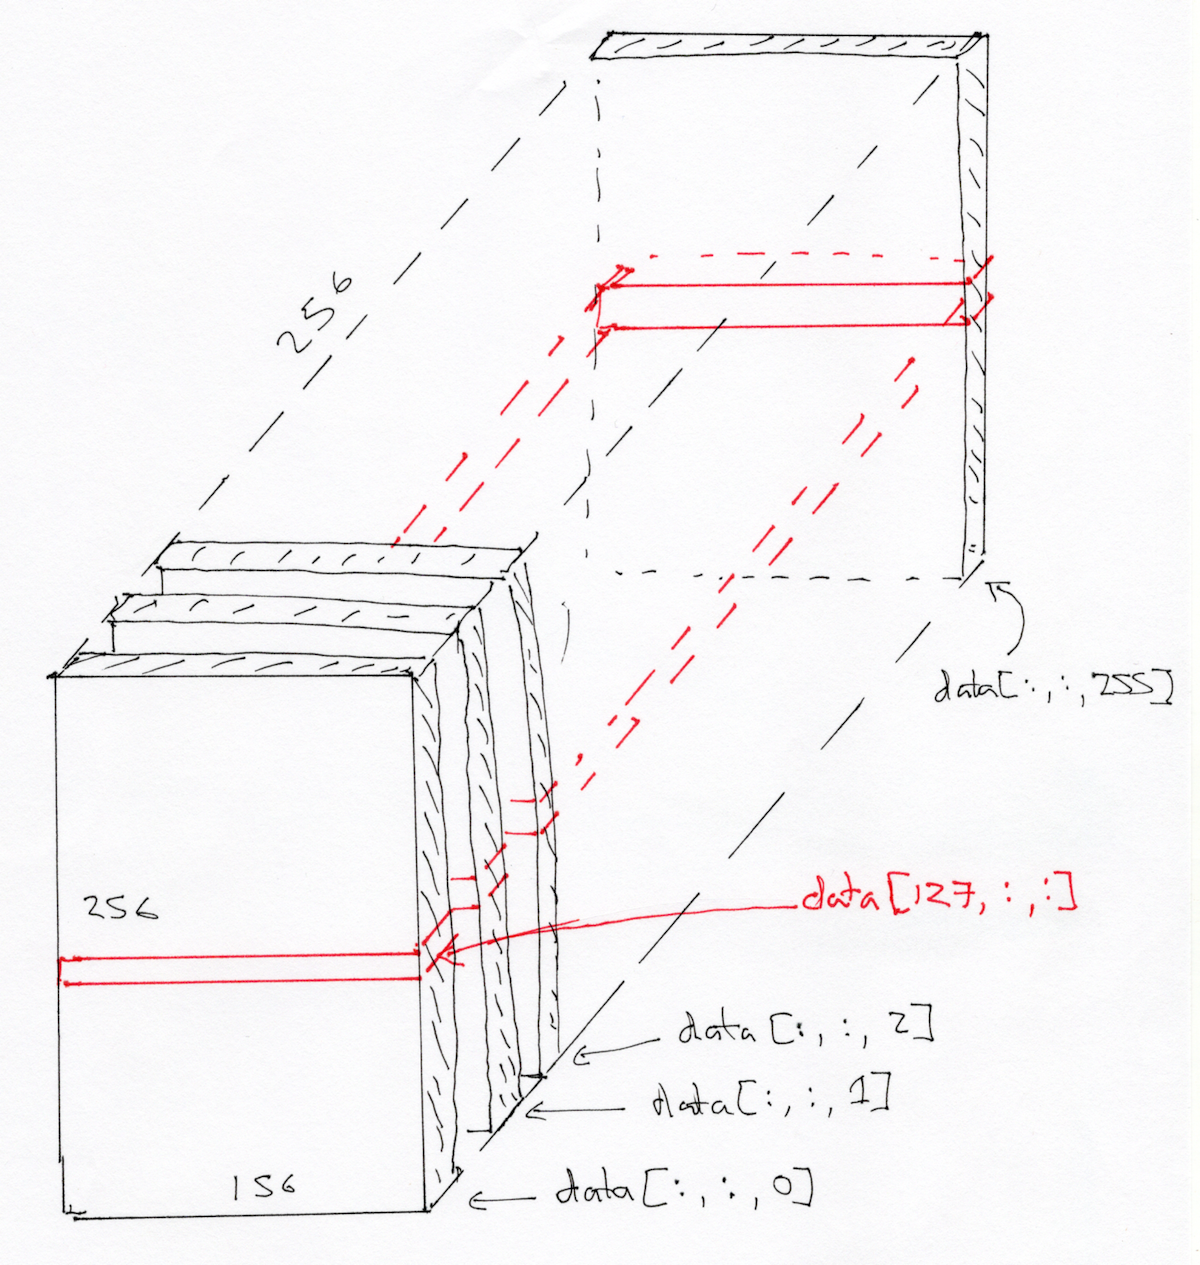 256
data[:,:,255]
data[127,:,:]
256
data[:,:,2]
data[:,:,1]
data[:,:,0]
156